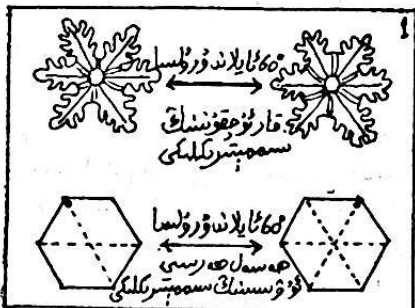 1
60° ئايلاندۇرۇلسا
قار ئۇچقۇنىنىڭ
سىممېتىرىكلىكى
60° ئايلاندۇرۇلسا
ھەسەل ھەرىسى
ئۇۋىسىنىڭ سىممېتىرىكلىكى